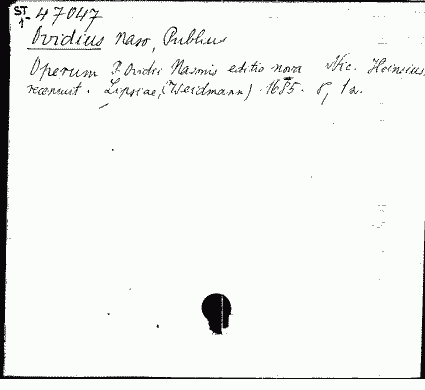 ST 1- 47047
Ovidius Naso, Publius
Operum P. Ovidii Nasonis editio nova Nic. Heinsius
recensuit. Lipsiae, (Weidmann) 1685. 8,